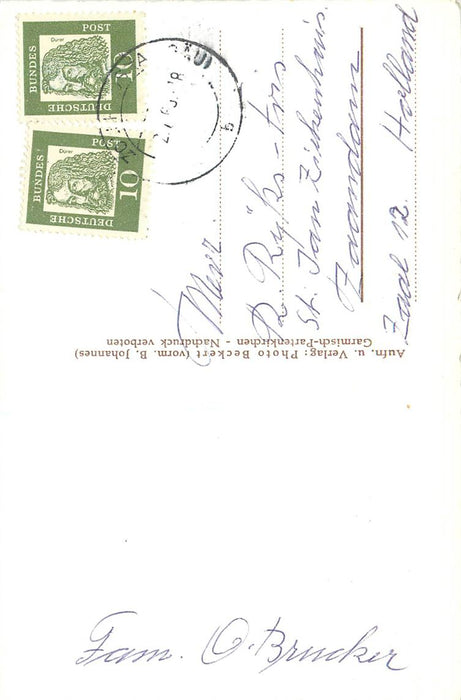 DEUTSCHE
BUNDES
POST
10
Dürer
DEUTSCHE
BUNDES
POST
10
Dürer
b
Mevr.
R. Rijks-Tris
St. Jan Ziekenhuis.
Zaandam
Zaal 12. Holland
Aufn. u. Verlag: Photo Beckert (vorm. B. Johannes)
Garmisch-Partenkirchen - Nachdruck verboten
Fam. O. Brucker